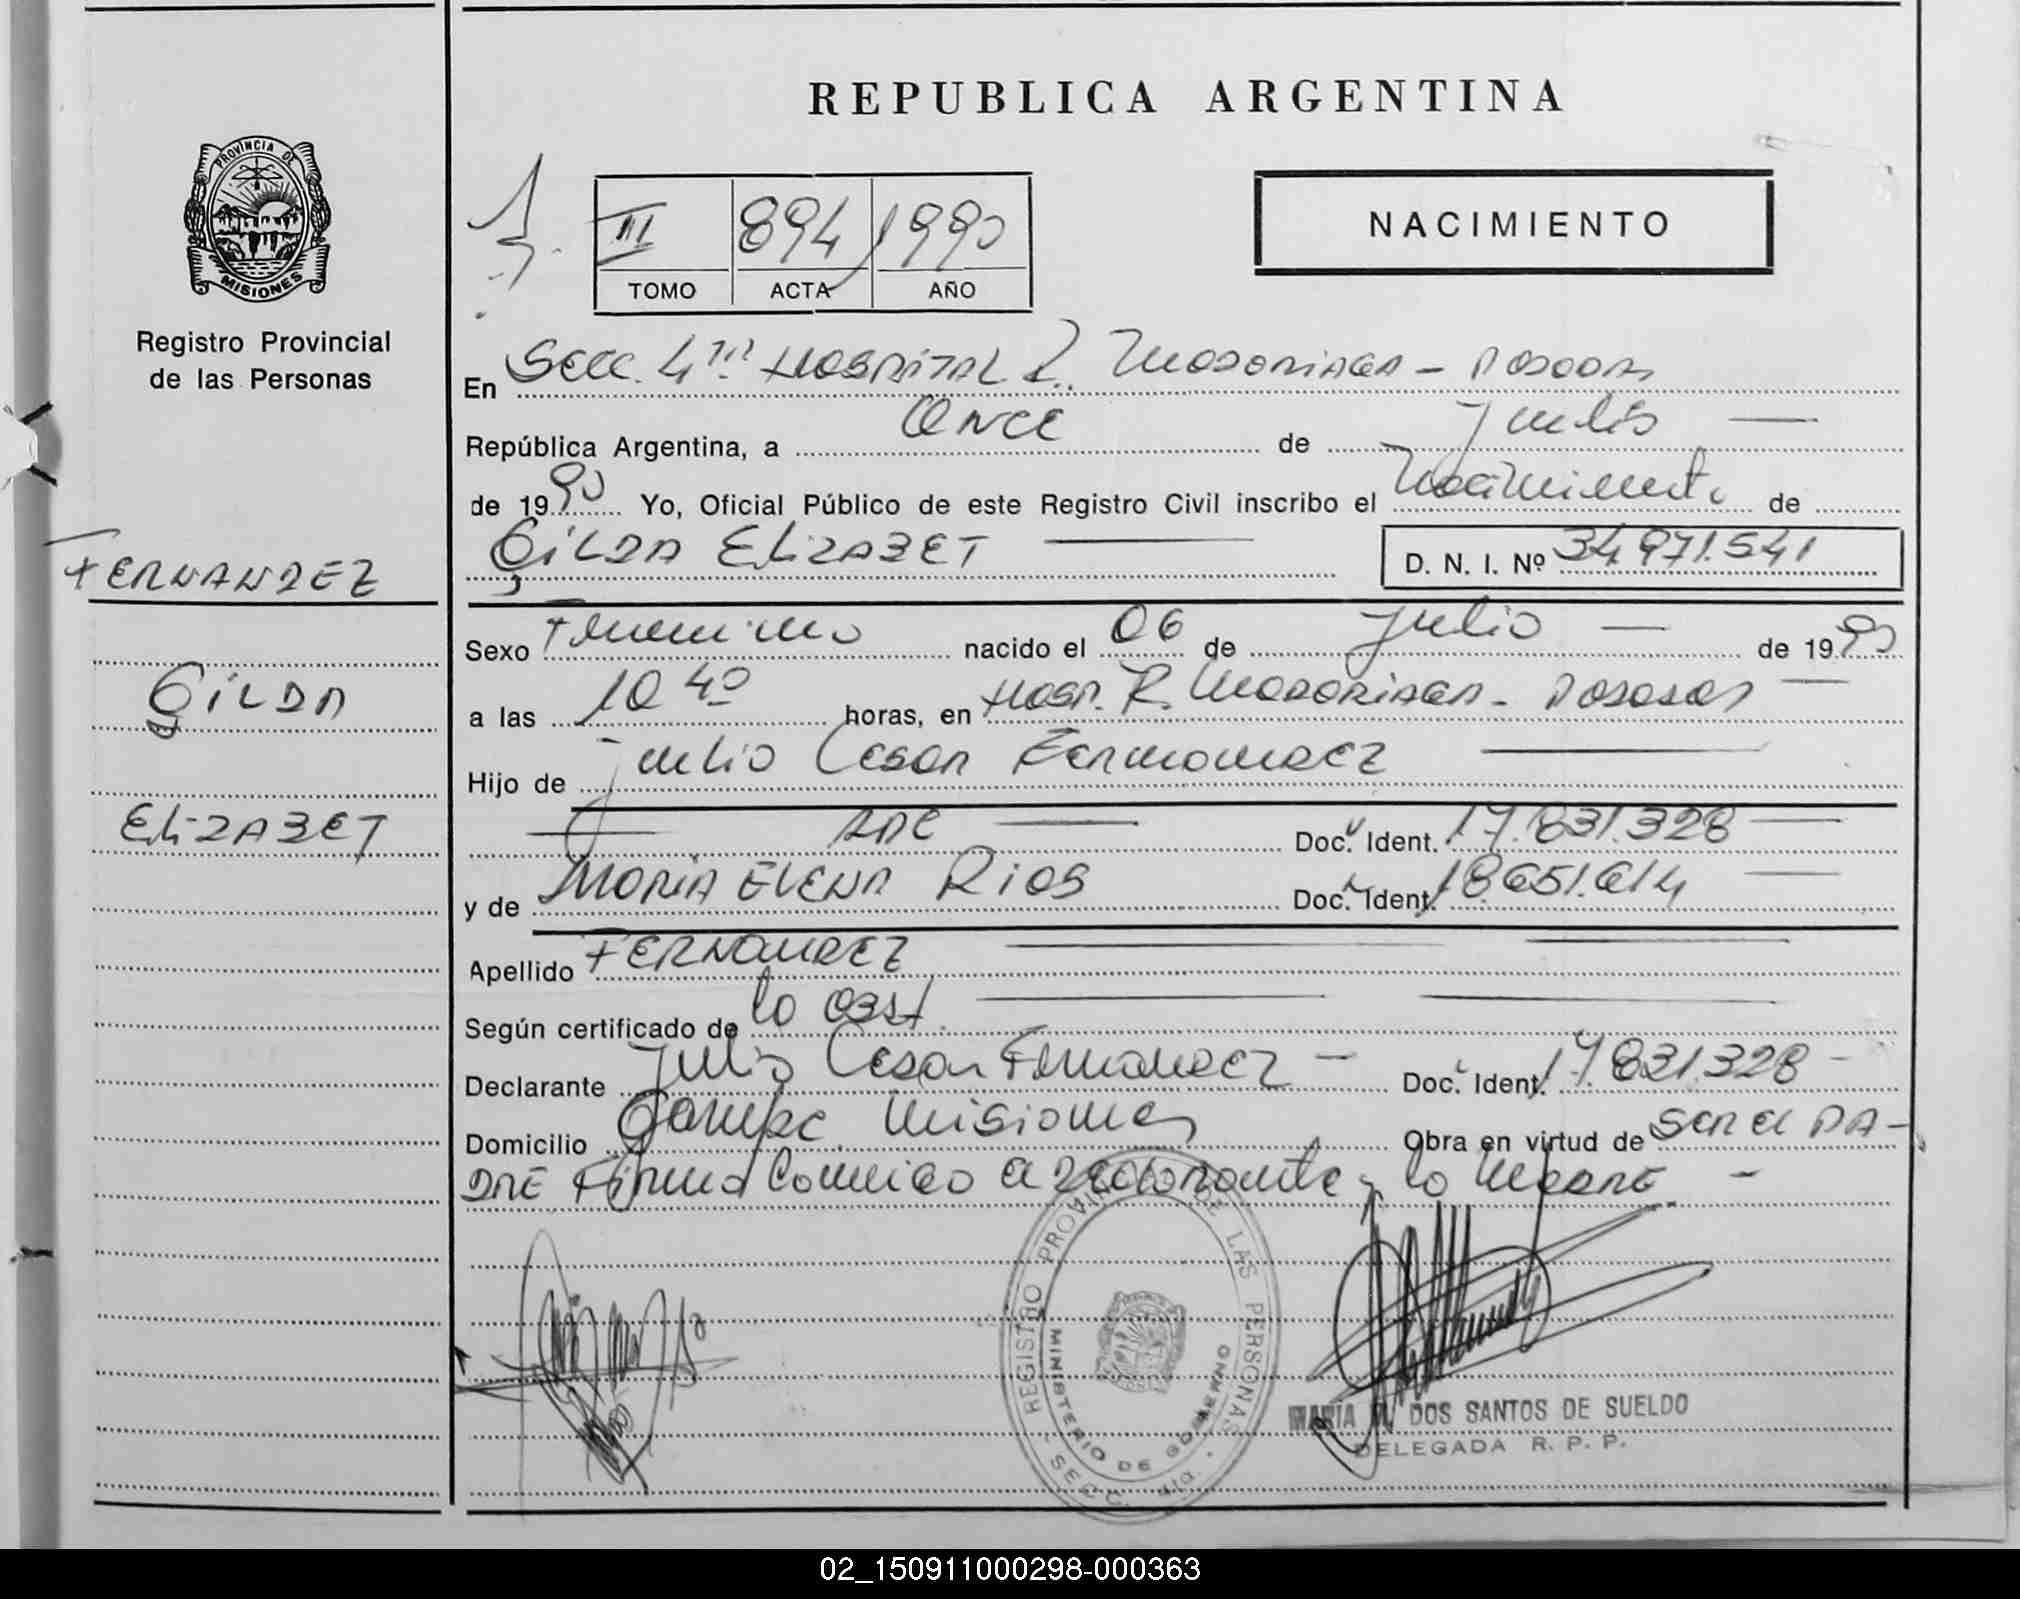 REPUBLICA ARGENTINA
PROVINCIA DE
MISIONES
Registro Provincial
de las Personas
III 894 1990
TOMO ACTA AÑO
NACIMIENTO
En Secc. 4ta Hospital R. Madariaga - Posadas
República Argentina, a Once de Julio
de 1990 Yo, Oficial Público de este Registro Civil inscribo el Nacimiento de
GILDA ELIZABET D. N. I. Nº 34.971.541
FERNANDEZ
GILDA
ELIZABET
Sexo Femenino nacido el 06 de Julio de 1990
a las 10 40 horas, en Hosp. R. Madariaga - Posadas
Hijo de Julio Cesar Fernandez
Doc. Ident. 17.831.328
y de MARIA ELENA Rios Doc. Ident. 18.651.614
Apellido FERNANDEZ
Según certificado de la Obst.
Declarante Julio Cesar Fernandez - Doc. Ident. 17.831.328 -
Domicilio Garupa. Misiones Obra en virtud de Ser el PA-
DRE Firma Conmigo el declarante y la Madre. -
REGISTRO PROVINCIAL DE LAS PERSONAS
MINISTERIO DE GOBIERNO
- SECC. 4ta. -
MARIA DOS SANTOS DE SUELDO
DELEGADA R. P. P.
02_150911000298-000363